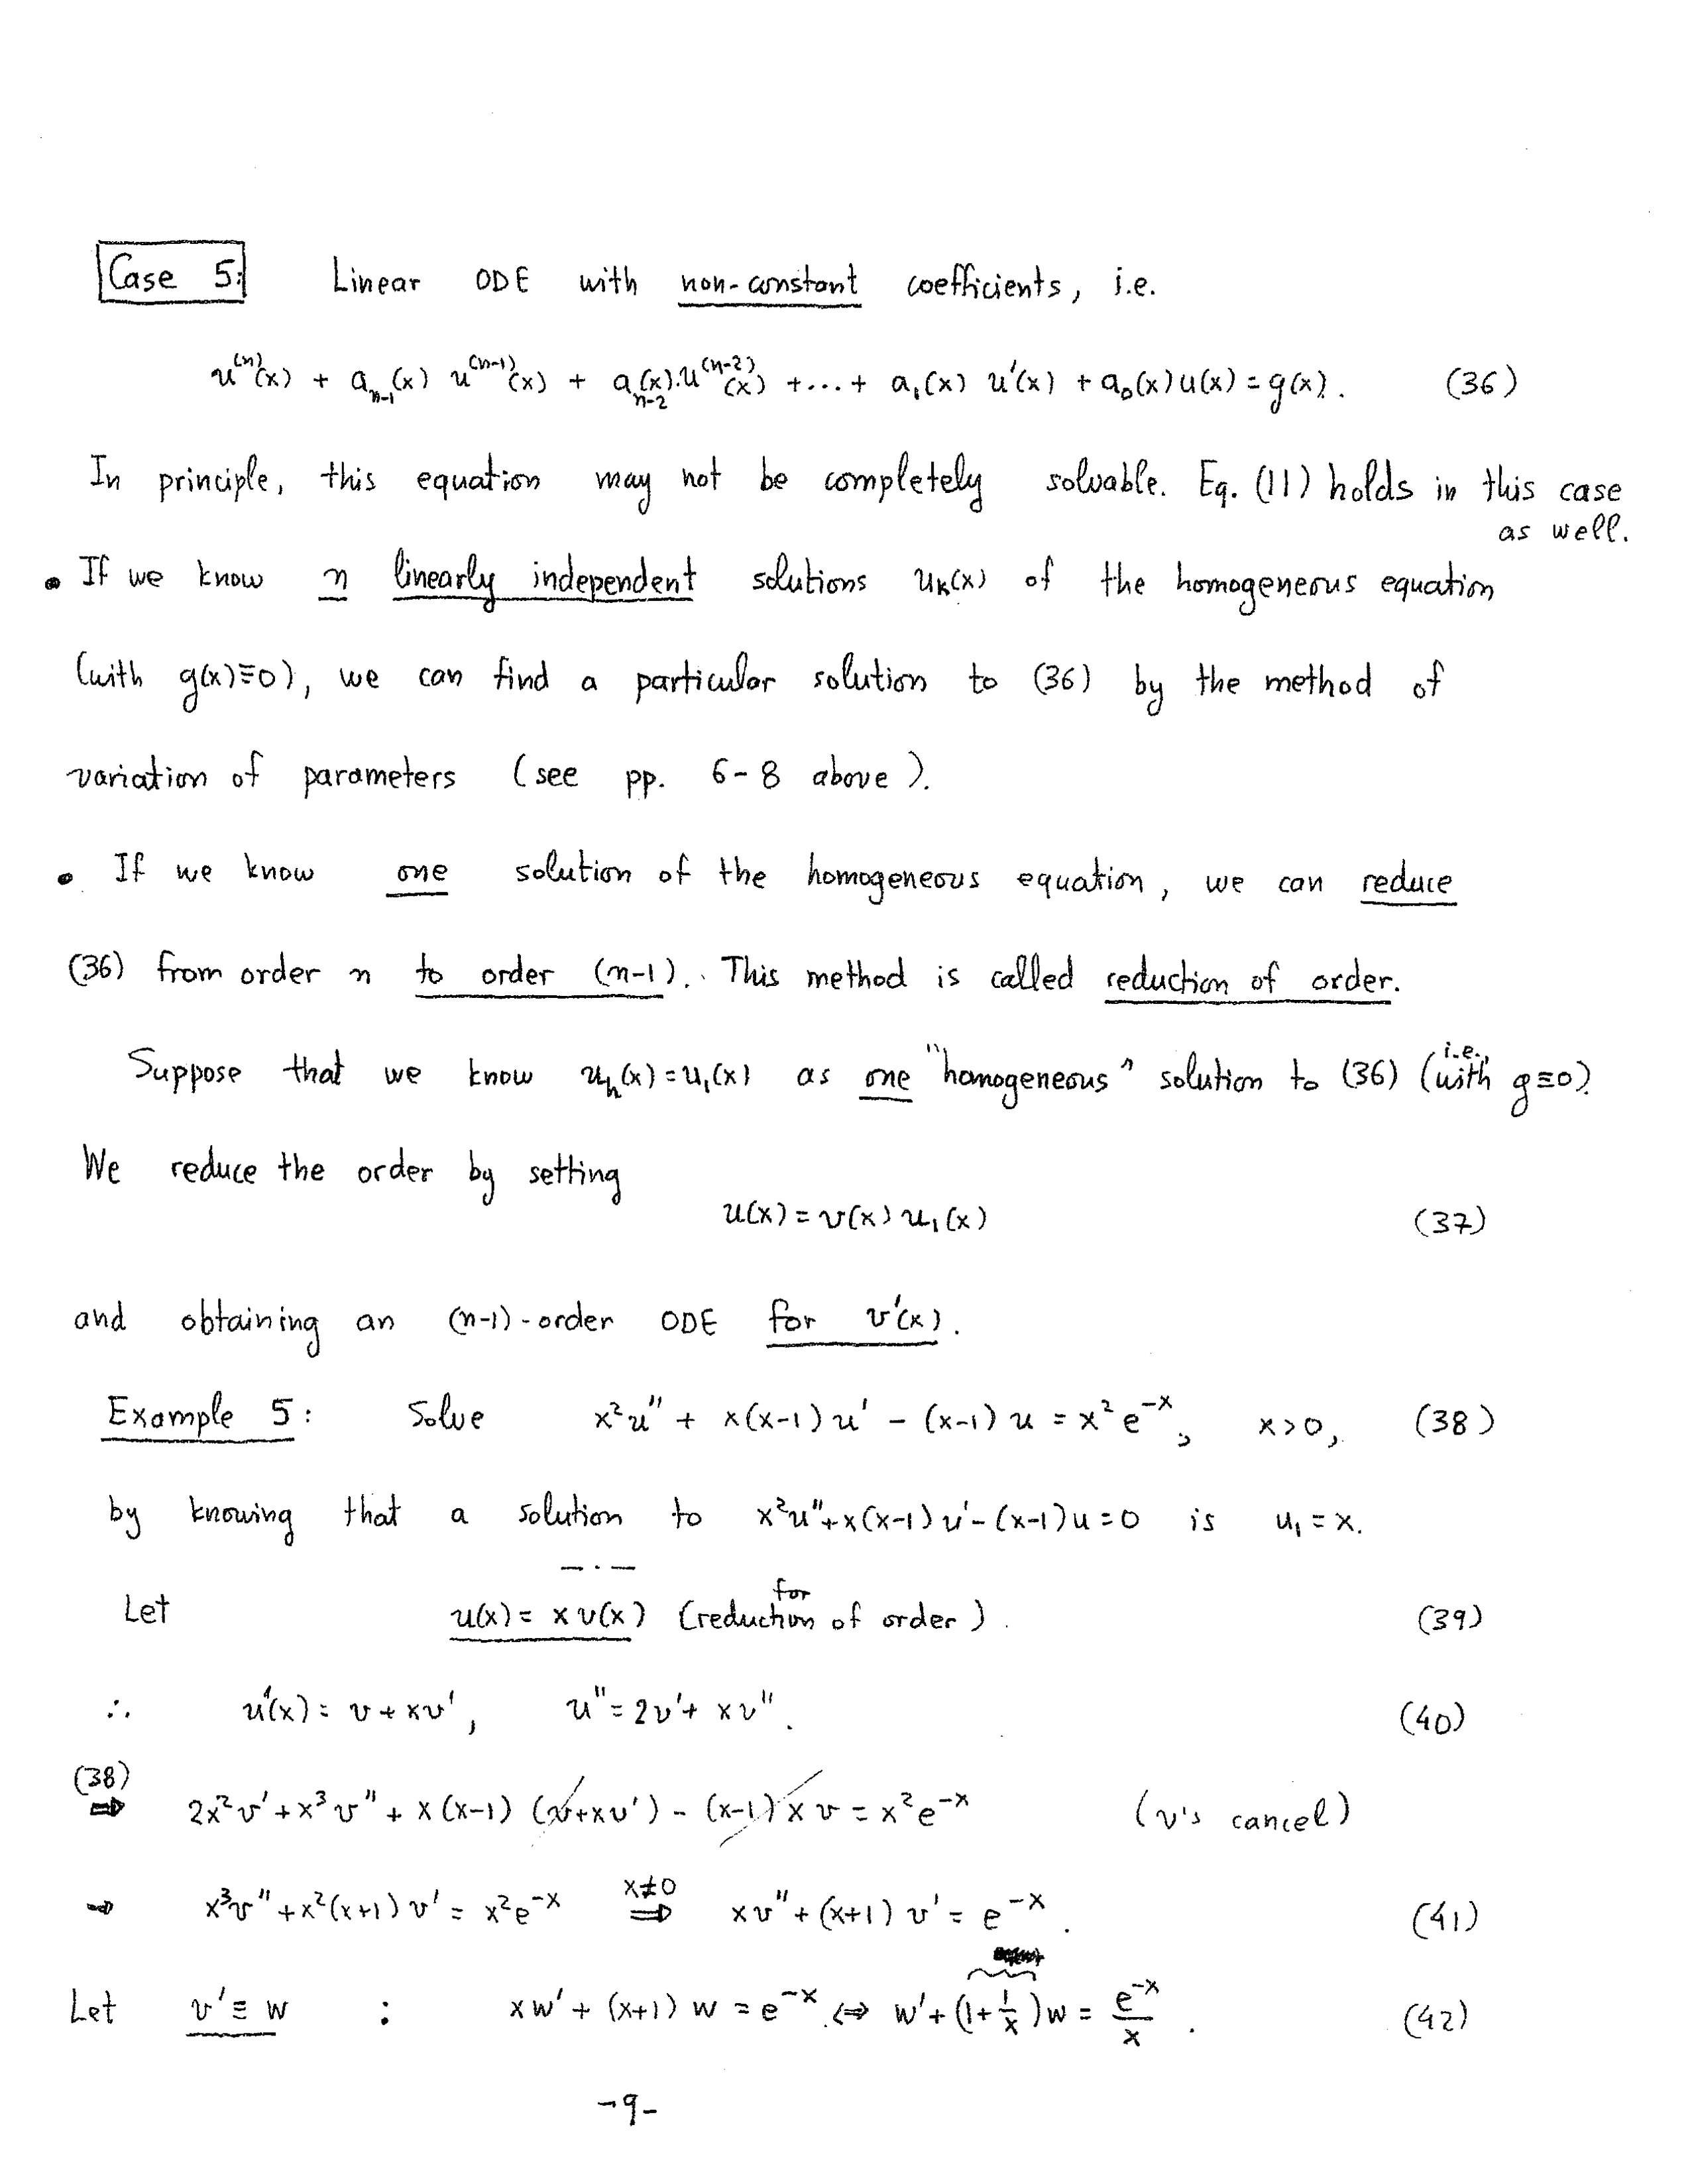 Case 5: Linear ODE with non-constant coefficients, i.e.
u^(n)(x) + a_{n-1}(x) u^(n-1)(x) + a_{n-2}(x).u^(n-2)(x) +...+ a_1(x) u'(x) + a_0(x)u(x) = g(x). (36)
In principle, this equation may not be completely solvable. Eq. (11) holds in this case
as well.
• If we know n linearly independent solutions u_k(x) of the homogeneous equation
(with g(x)≡0), we can find a particular solution to (36) by the method of
variation of parameters (see pp. 6-8 above).
• If we know one solution of the homogeneous equation, we can reduce
(36) from order n to order (n-1). This method is called reduction of order.
Suppose that we know u_h(x)=u_1(x) as one "homogeneous" solution to (36) (i.e., with g≡0).
We reduce the order by setting
u(x) = v(x) u_1(x) (37)
and obtaining an (n-1)-order ODE for v'(x).
Example 5: Solve x²u" + x(x-1)u' - (x-1)u = x²e^{-x}, x>0, (38)
by knowing that a solution to x²u"+x(x-1)u'-(x-1)u=0 is u_1 = x.
— . —
Let u(x) = x v(x) (for reduction of order). (39)
∴ u'(x) = v + xv', u" = 2v' + xv". (40)
(38) ⇒ 2x²v' + x³v" + x(x-1) (v+xv') - (x-1) x v = x²e^{-x} (v's cancel)
⇒ x³v" + x²(x+1) v' = x²e^{-x} x≠0 ⇒ xv" + (x+1) v' = e^{-x}. (41)
Let v' ≡ w : xw' + (x+1) w = e^{-x} ⇔ w' + (1+1/x)w = e^{-x}/x. (42)
-9-